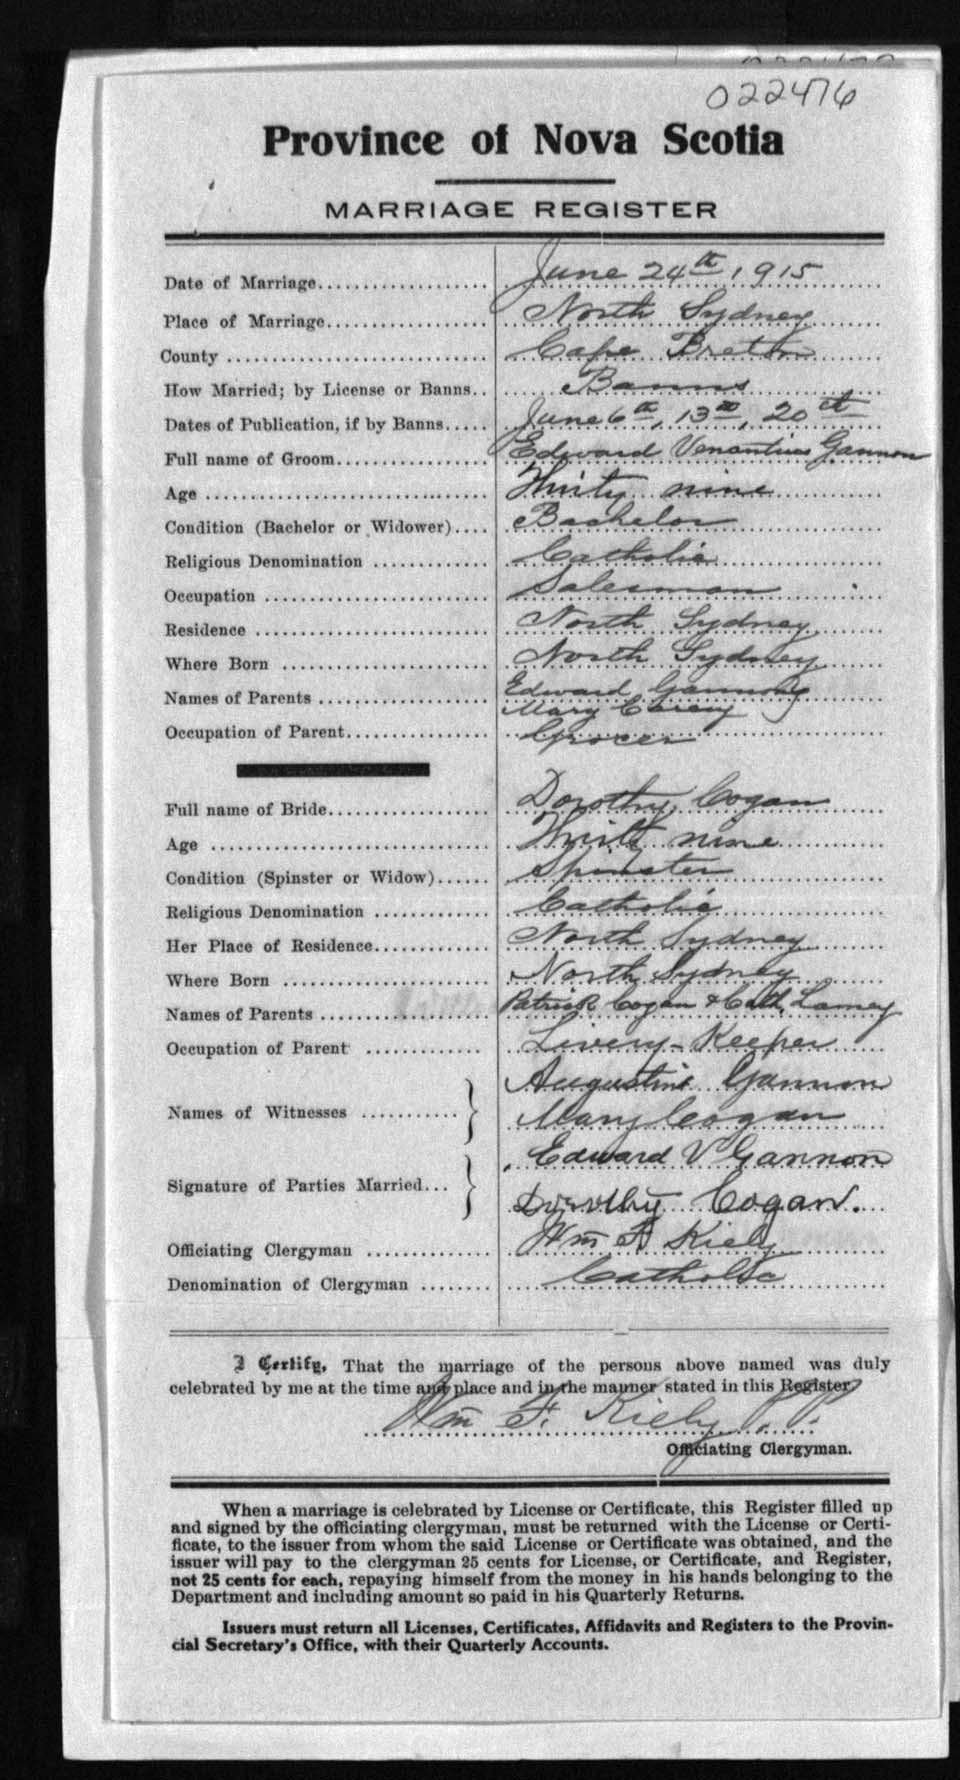 022476
Province of Nova Scotia
MARRIAGE REGISTER
Date of Marriage................... June 24th, 1915
Place of Marriage.................. North Sydney
County ............................. Cape Breton
How Married; by License or Banns.. Banns
Dates of Publication, if by Banns..... June 6th, 13th, 20th
Full name of Groom................. Edward Venantius Gannon
Age ............................... Thirty nine
Condition (Bachelor or Widower).... Bachelor
Religious Denomination ............. Catholic
Occupation ......................... Salesman
Residence .......................... North Sydney
Where Born ....................... North Sydney
Names of Parents ................... Edward Gannon
Mary Carey
Occupation of Parent................ Grocer
Full name of Bride.................. Dorothy Cogan
Age ............................... Thirty nine
Condition (Spinster or Widow)...... Spinster
Religious Denomination ............. Catholic
Her Place of Residence............. North Sydney
Where Born ....................... North Sydney
Names of Parents ................... Patrick Cogan & Cath. Lamey
Occupation of Parent ............. Livery-Keeper
Names of Witnesses ........... } Augustine Gannon
Mary Cogan
Signature of Parties Married... } Edward V Gannon
Dorothy Cogan.
Officiating Clergyman .............. Wm F Kiely
Denomination of Clergyman ........ Catholic
I Certify, That the marriage of the persons above named was duly
celebrated by me at the time and place and in the manner stated in this Register.
Wm F. Kiely P.P.
Officiating Clergyman.
When a marriage is celebrated by License or Certificate, this Register filled up
and signed by the officiating clergyman, must be returned with the License or Certi-
ficate, to the issuer from whom the said License or Certificate was obtained, and the
issuer will pay to the clergyman 25 cents for License, or Certificate, and Register,
not 25 cents for each, repaying himself from the money in his hands belonging to the
Department and including amount so paid in his Quarterly Returns.
Issuers must return all Licenses, Certificates, Affidavits and Registers to the Provin-
cial Secretary's Office, with their Quarterly Accounts.